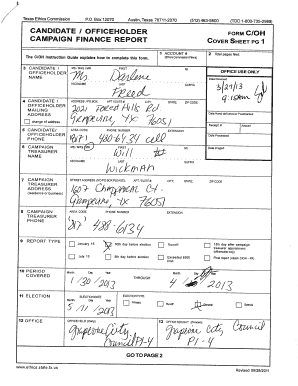 Texas Ethics Commission P.O. Box 12070 Austin, Texas 78711-2070 (512) 463-5800 (TDD 1-800-735-2989)
CANDIDATE / OFFICEHOLDER
CAMPAIGN FINANCE REPORT
FORM C/OH
COVER SHEET PG 1
The C/OH Instruction Guide explains how to complete this form.
1 ACCOUNT #
2 Total pages filed:
3 CANDIDATE / OFFICEHOLDER NAME
Ms. Darlene
Freed
OFFICE USE ONLY
Date Received
3/27/13
4 CANDIDATE / OFFICEHOLDER MAILING ADDRESS
change of address
ADDRESS / PO BOX; APT / SUITE #; CITY; STATE; ZIP CODE
Hills Rd
Grapevine, TX 76051
5 CANDIDATE / OFFICEHOLDER PHONE
AREA CODE PHONE NUMBER EXTENSION
(817) 480-6134 cell
Receipt #
Amount
Date Processed
6 CAMPAIGN TREASURER NAME
Will
Wickman
Date Imaged
7 CAMPAIGN TREASURER ADDRESS
(residence or business)
1607 Chaparral Ct.
Grapevine, TX 76051
8 CAMPAIGN TREASURER PHONE
AREA CODE PHONE NUMBER EXTENSION
817 488-6134
9 REPORT TYPE
January 15
30th day before election
Runoff
15th day after campaign treasurer appointment (officeholder only)
July 15
8th day before election
Exceeded $500 limit
Final report
10 PERIOD COVERED
Month Day Year
1/30/2013
THROUGH
Month Day Year
2013
11 ELECTION
ELECTION DATE
5/11/2013
ELECTION TYPE
Primary
Runoff
General
Special
12 OFFICE
OFFICE HELD (if any)
Grapevine City
Council Pl-4
13 OFFICE SOUGHT (if known)
Grapevine City Council
Pl-4
GO TO PAGE 2
www.ethics.state.tx.us
Revised 09/28/2011